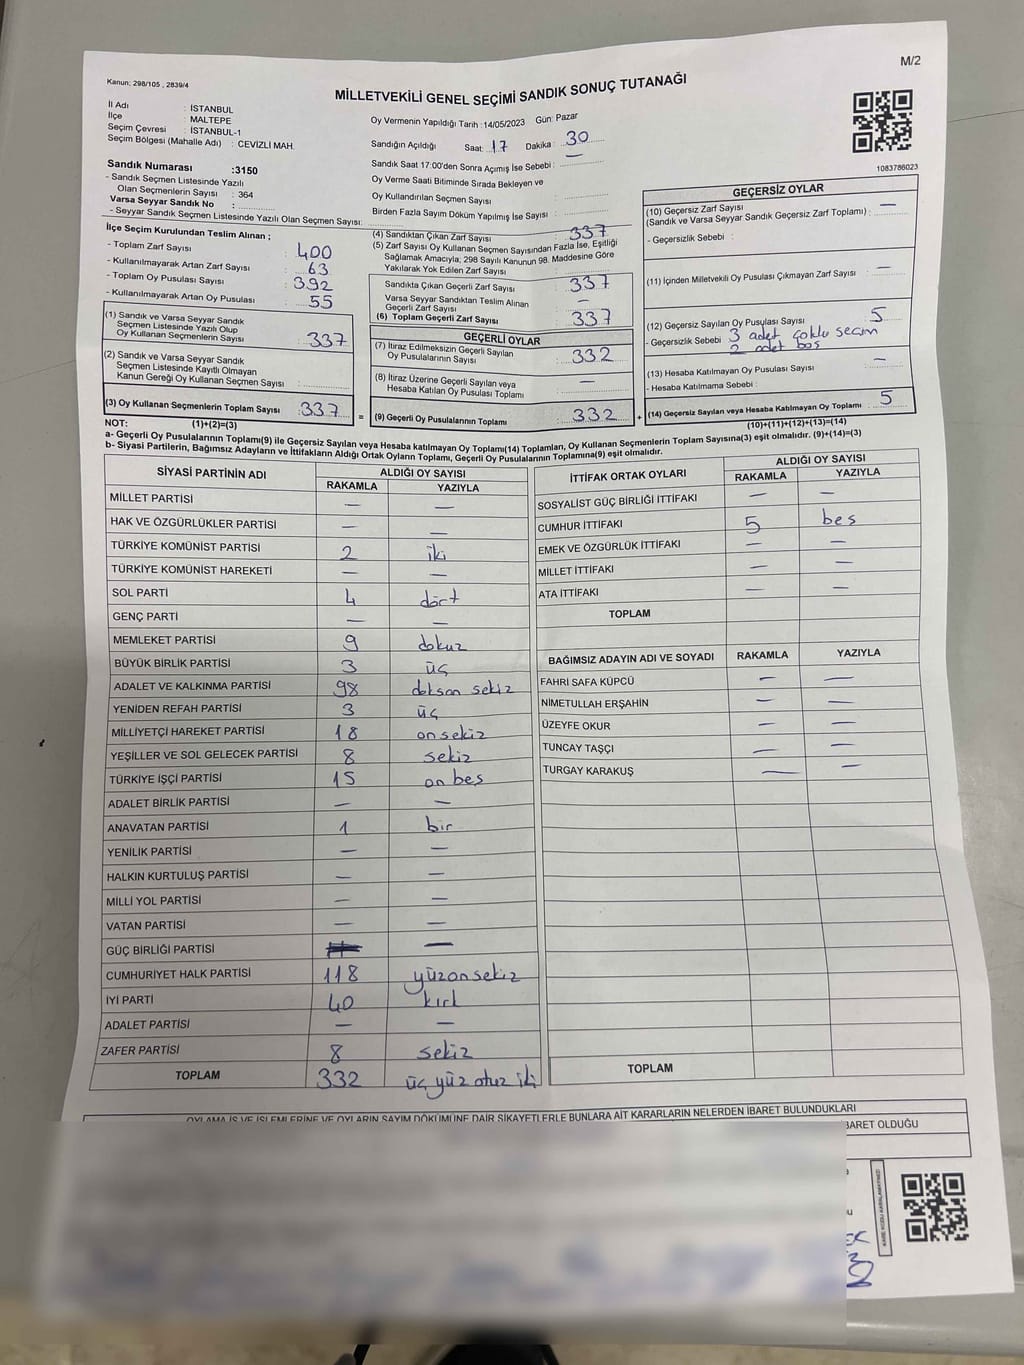 Kanun: 298/105 , 2839/4
M/2
MİLLETVEKİLİ GENEL SEÇİMİ SANDIK SONUÇ TUTANAĞI
İl Adı : İSTANBUL
İlçe : MALTEPE
Seçim Çevresi : İSTANBUL-1
Seçim Bölgesi (Mahalle Adı) : CEVİZLİ MAH.
Sandık Numarası :3150
- Sandık Seçmen Listesinde Yazılı
Olan Seçmenlerin Sayısı : 364
Varsa Seyyar Sandık No :
- Seyyar Sandık Seçmen Listesinde Yazılı Olan Seçmen Sayısı:
İlçe Seçim Kurulundan Teslim Alınan ;
- Toplam Zarf Sayısı : 400
- Kullanılmayarak Artan Zarf Sayısı : 63
- Toplam Oy Pusulası Sayısı : 392
- Kullanılmayarak Artan Oy Pusulası : 55
(1) Sandık ve Varsa Seyyar Sandık
Seçmen Listesinde Yazılı Olup
Oy Kullanan Seçmenlerin Sayısı : 337
(2) Sandık ve Varsa Seyyar Sandık
Seçmen Listesinde Kayıtlı Olmayan
Kanun Gereği Oy Kullanan Seçmen Sayısı :
(3) Oy Kullanan Seçmenlerin Toplam Sayısı : 337 =
Oy Vermenin Yapıldığı Tarih :14/05/2023 Gün: Pazar
Sandığın Açıldığı Saat: 17 Dakika : 30
Sandık Saat 17:00'den Sonra Açımış İse Sebebi : —
Oy Verme Saati Bitiminde Sırada Bekleyen ve
Oy Kullandırılan Seçmen Sayısı :
Birden Fazla Sayım Döküm Yapılmış İse Sayısı :
(4) Sandıktan Çıkan Zarf Sayısı : 337
(5) Zarf Sayısı Oy Kullanan Seçmen Sayısından Fazla İse, Eşitliği
Sağlamak Amacıyla; 298 Sayılı Kanunun 98. Maddesine Göre
Yakılarak Yok Edilen Zarf Sayısı :
Sandıkta Çıkan Geçerli Zarf Sayısı : 337
Varsa Seyyar Sandıktan Teslim Alınan
Geçerli Zarf Sayısı : —
(6) Toplam Geçerli Zarf Sayısı : 337
GEÇERLİ OYLAR
(7) İtiraz Edilmeksizin Geçerli Sayılan
Oy Pusulalarının Sayısı : 332
(8) İtiraz Üzerine Geçerli Sayılan veya
Hesaba Katılan Oy Pusulası Toplamı : —
(9) Geçerli Oy Pusulalarının Toplamı : 332 +
1083786023
GEÇERSİZ OYLAR
(10) Geçersiz Zarf Sayısı
(Sandık ve Varsa Seyyar Sandık Geçersiz Zarf Toplamı) : —
- Geçersizlik Sebebi :
(11) İçinden Milletvekili Oy Pusulası Çıkmayan Zarf Sayısı : —
(12) Geçersiz Sayılan Oy Pusulası Sayısı : 5
- Geçersizlik Sebebi 3 adet çoklu seçim
2 adet boş
(13) Hesaba Katılmayan Oy Pusulası Sayısı : —
- Hesaba Katılmama Sebebi :
(14) Geçersiz Sayılan veya Hesaba Katılmayan Oy Toplamı : 5
NOT: (1)+(2)=(3) (10)+(11)+(12)+(13)=(14)
a- Geçerli Oy Pusulalarının Toplamı(9) ile Geçersiz Sayılan veya Hesaba katılmayan Oy Toplamı(14) Toplamları, Oy Kullanan Seçmenlerin Toplam Sayısına(3) eşit olmalıdır. (9)+(14)=(3)
b- Siyasi Partilerin, Bağımsız Adayların ve İttifakların Aldığı Ortak Oyların Toplamı, Geçerli Oy Pusulalarının Toplamına(9) eşit olmalıdır.
SİYASİ PARTİNİN ADI ALDIĞI OY SAYISI
RAKAMLA YAZIYLA
MİLLET PARTİSİ — —
HAK VE ÖZGÜRLÜKLER PARTİSİ — —
TÜRKİYE KOMÜNİST PARTİSİ 2 iki
TÜRKİYE KOMÜNİST HAREKETİ — —
SOL PARTİ 4 dört
GENÇ PARTİ — —
MEMLEKET PARTİSİ 9 dokuz
BÜYÜK BİRLİK PARTİSİ 3 üç
ADALET VE KALKINMA PARTİSİ 98 doksan sekiz
YENİDEN REFAH PARTİSİ 3 üç
MİLLİYETÇİ HAREKET PARTİSİ 18 onsekiz
YEŞİLLER VE SOL GELECEK PARTİSİ 8 sekiz
TÜRKİYE İŞÇİ PARTİSİ 15 on bes
ADALET BİRLİK PARTİSİ — —
ANAVATAN PARTİSİ 1 bir
YENİLİK PARTİSİ — —
HALKIN KURTULUŞ PARTİSİ — —
MİLLİ YOL PARTİSİ — —
VATAN PARTİSİ — —
GÜÇ BİRLİĞİ PARTİSİ —
CUMHURİYET HALK PARTİSİ 118 yüzonsekiz
İYİ PARTİ 40 kırk
ADALET PARTİSİ — —
ZAFER PARTİSİ 8 sekiz
TOPLAM 332 üç yüz otuz iki
İTTİFAK ORTAK OYLARI ALDIĞI OY SAYISI
RAKAMLA YAZIYLA
SOSYALİST GÜÇ BİRLİĞİ İTTİFAKI — —
CUMHUR İTTİFAKI 5 bes
EMEK VE ÖZGÜRLÜK İTTİFAKI — —
MİLLET İTTİFAKI — —
ATA İTTİFAKI — —
TOPLAM
BAĞIMSIZ ADAYIN ADI VE SOYADI RAKAMLA YAZIYLA
FAHRİ SAFA KÜPCÜ — —
NİMETULLAH ERŞAHİN — —
ÜZEYFE OKUR — —
TUNCAY TAŞÇI — —
TURGAY KARAKUŞ — —
TOPLAM
OYLAMA İŞ VE İŞLEMLERİNE VE OYLARIN SAYIM DÖKÜMÜNE DAİR ŞİKAYETLERLE BUNLARA AİT KARARLARIN NELERDEN İBARET BULUNDUKLARI
BARET OLDUĞU